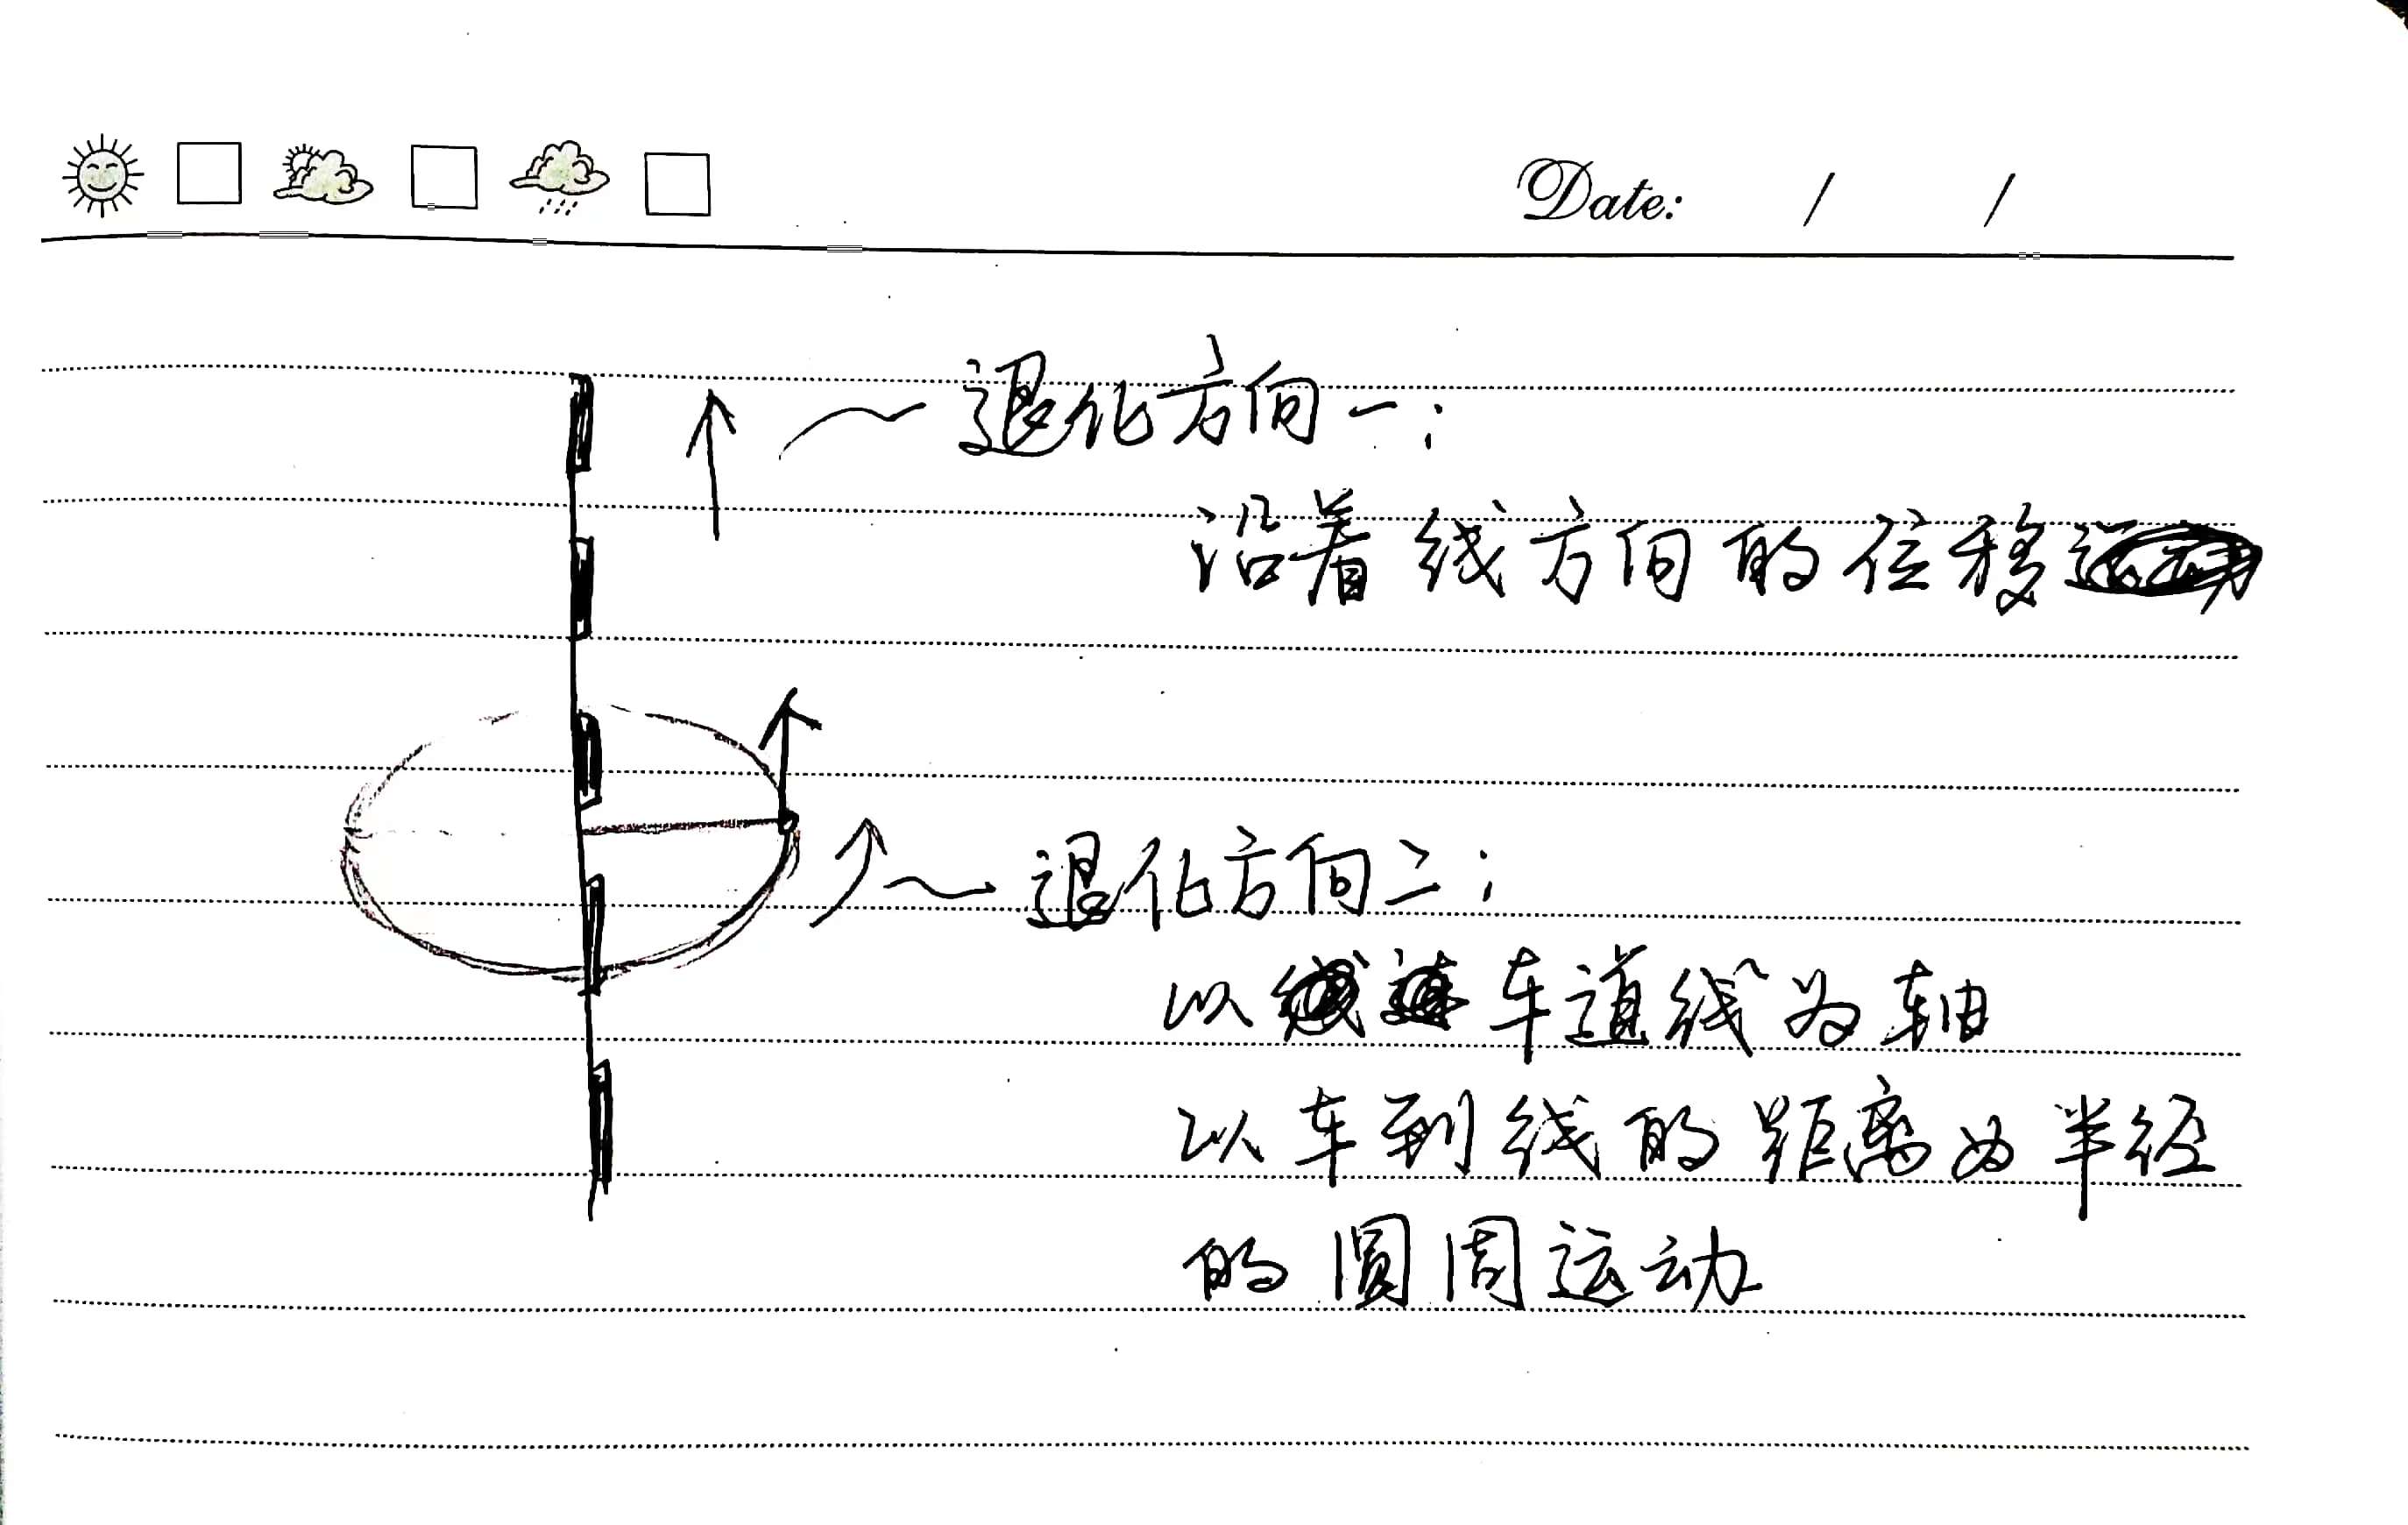 Date: / /
退化方向一:
沿着线方向的位移
退化方向二:
以车道线为轴
以车到线的距离为半径
的圆周运动